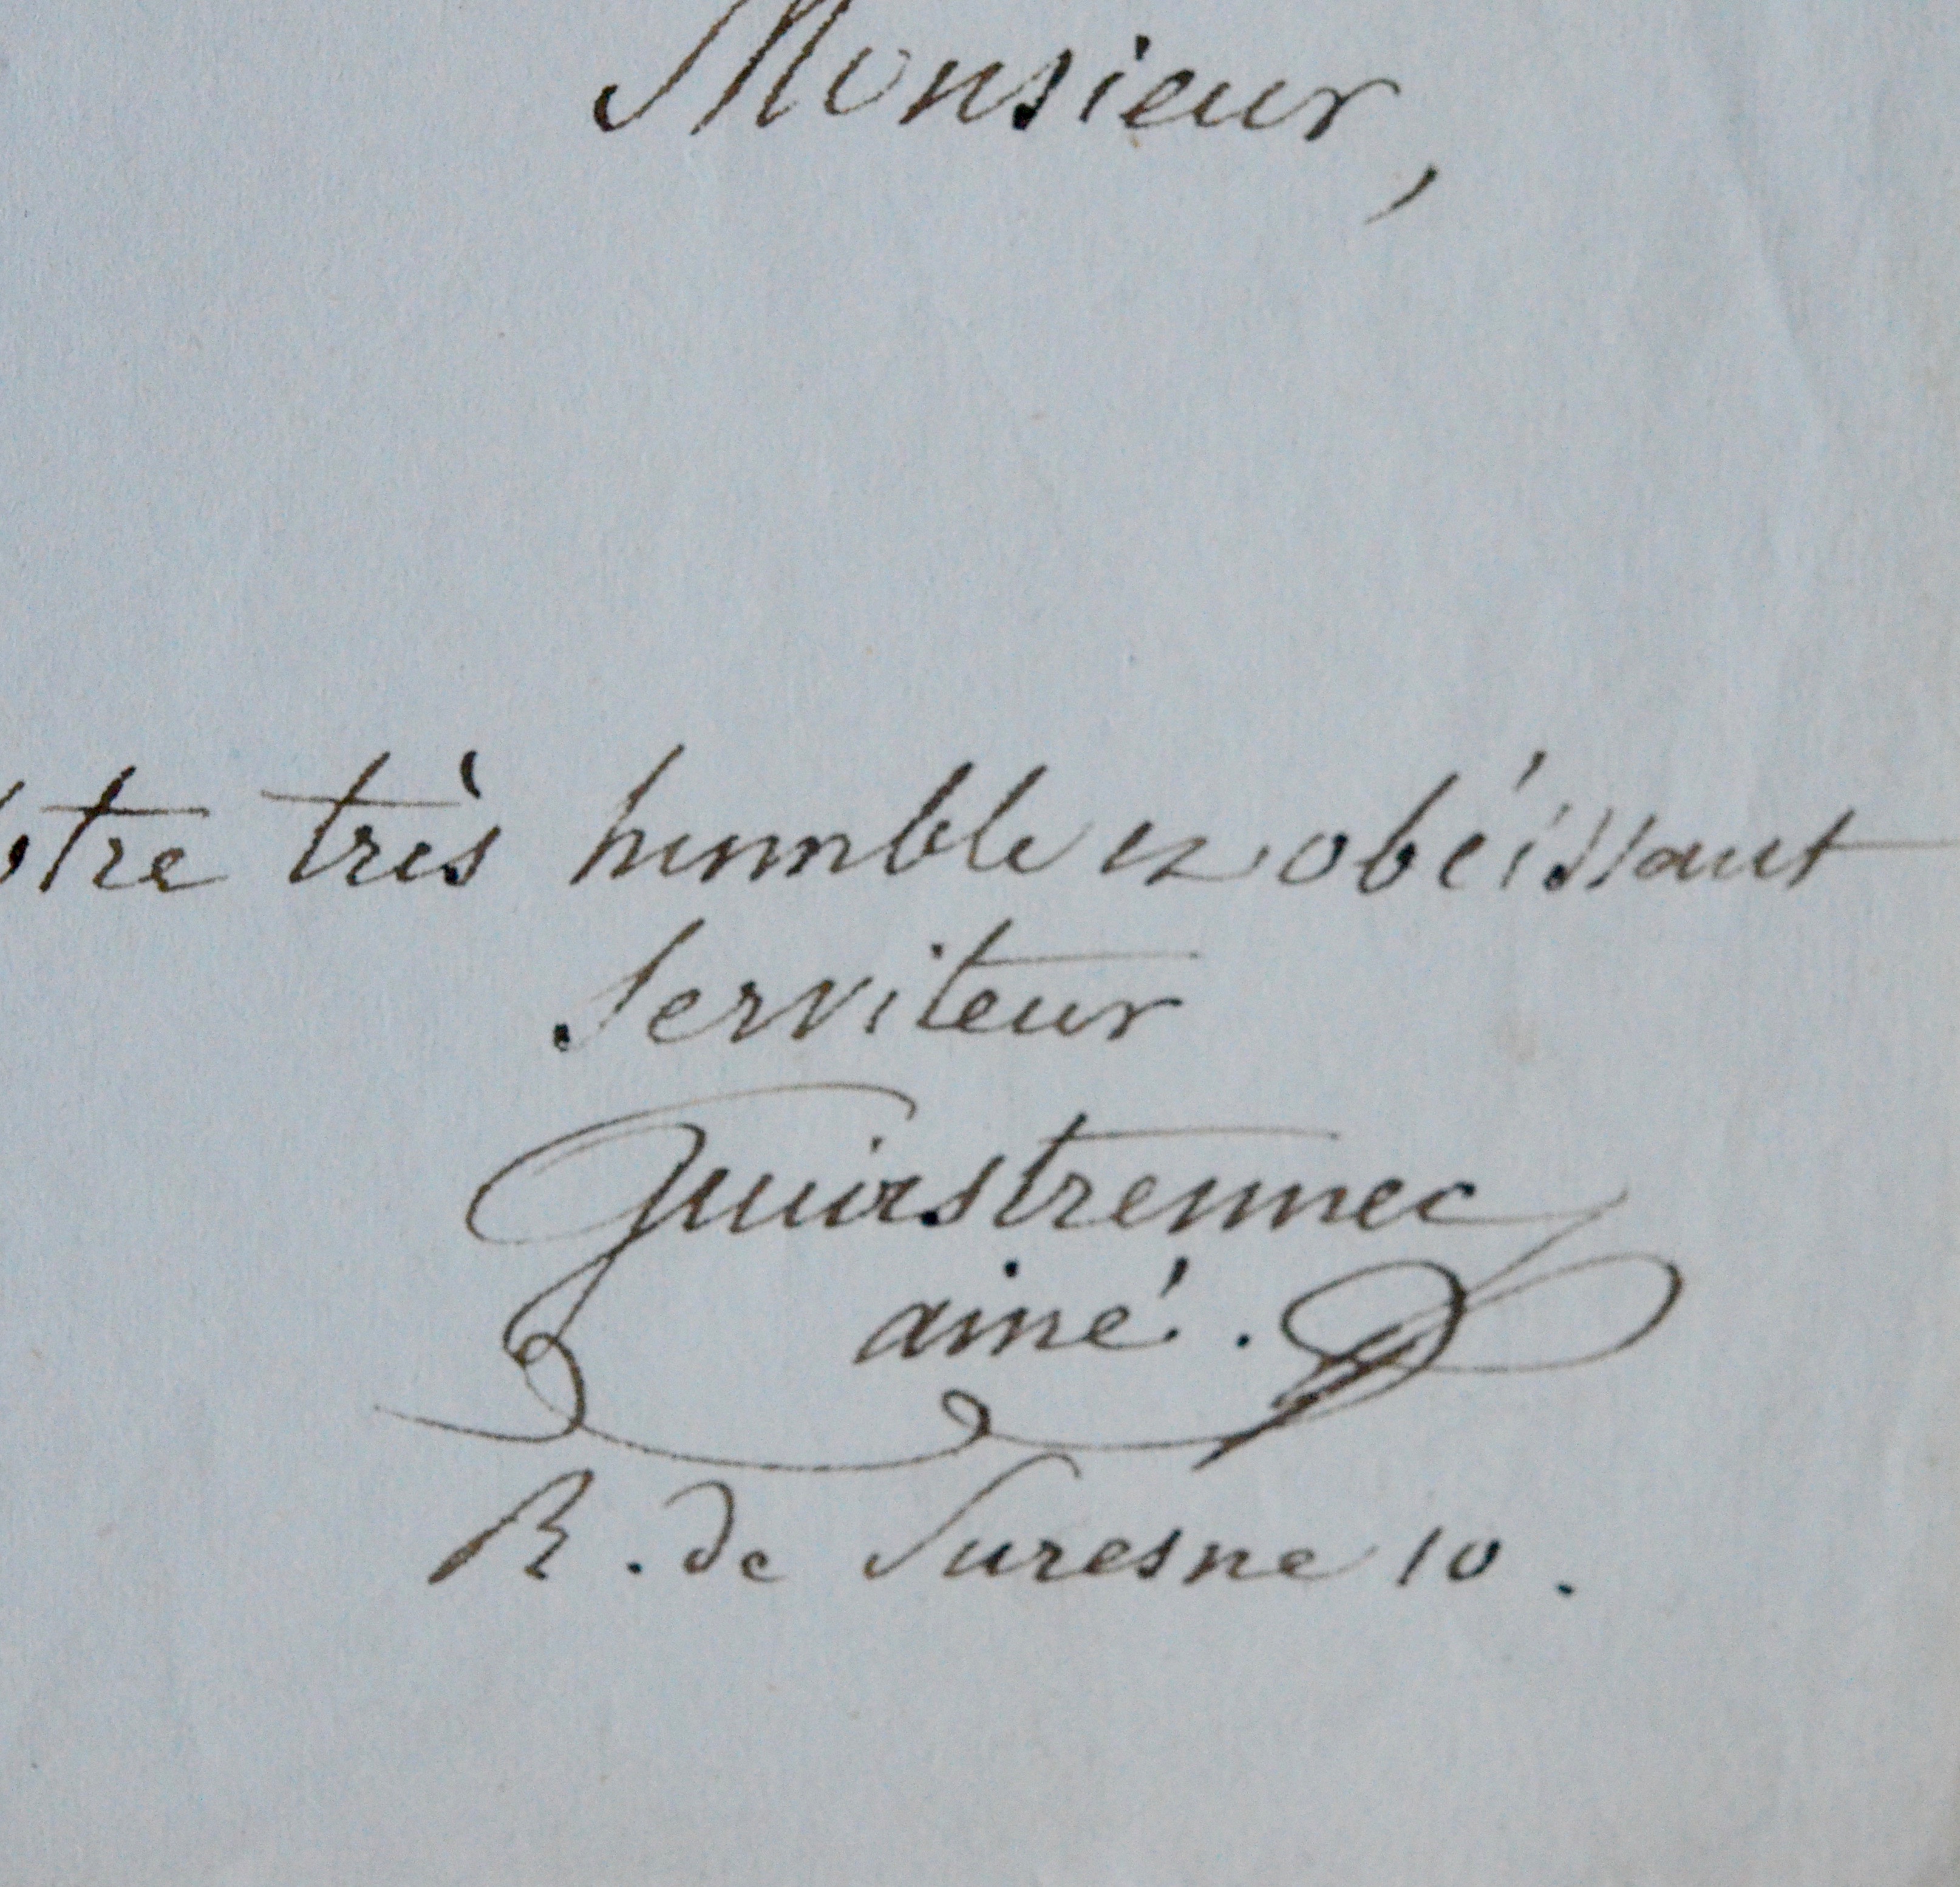 Monsieur,
otre très humble et obéissant
Serviteur
Guiastrennec
ainé.
R. de Suresne 10.